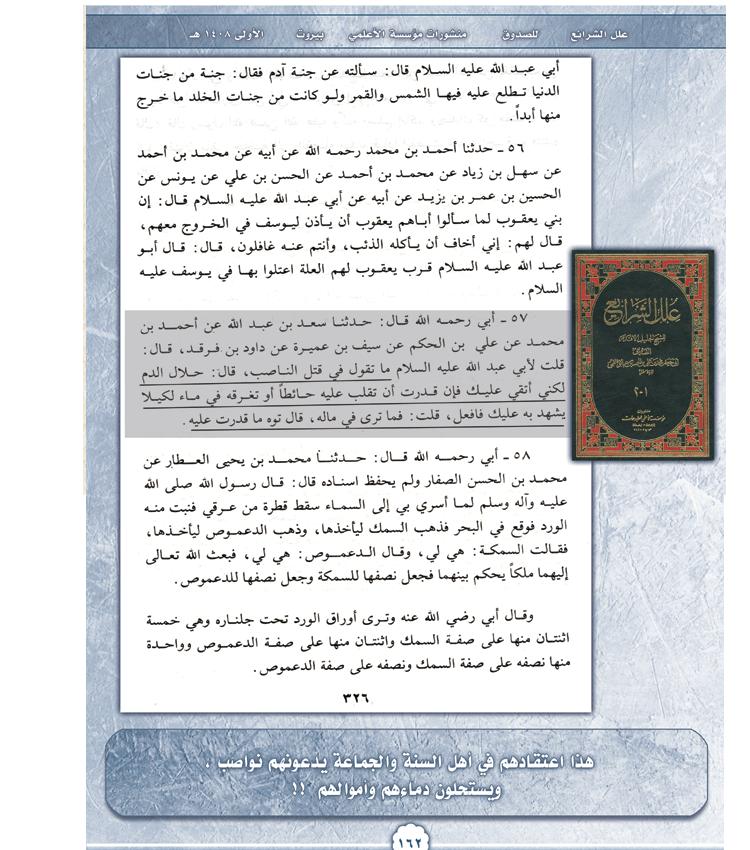 علل الشرائع للصدوق منشورات مؤسسة الأعلمي بيروت الأولى ١٤٠٨ هـ
أبي عبد الله عليه السلام قال: سألته عن جنة آدم فقال: جنة من جنات
الدنيا تطلع عليه فيها الشمس والقمر ولو كانت من جنات الخلد ما خرج
منها أبداً.
٥٦ ـ حدثنا أحمد بن محمد رحمه الله عن أبيه عن محمد بن أحمد
عن سهل بن زياد عن محمد بن أحمد عن الحسن بن علي عن يونس عن
الحسين بن عمر بن يزيد عن أبيه عن أبي عبد الله عليه السلام قال: إن
بني يعقوب لما سألوا أباهم يعقوب أن يأذن ليوسف في الخروج معهم،
قال لهم: إني أخاف أن يأكله الذئب، وأنتم عنه غافلون، قال: قال أبو
عبد الله عليه السلام قرب يعقوب لهم العلة اعتلوا بها في يوسف عليه
السلام.
٥٧ ـ أبي رحمه الله قال: حدثنا سعد بن عبد الله عن أحمد بن
محمد عن علي بن الحكم عن سيف بن عميرة عن داود بن فرقد، قال:
قلت لأبي عبد الله عليه السلام ما تقول في قتل الناصب، قال: حلال الدم
لكني أتقي عليك فإن قدرت أن تقلب عليه حائطاً أو تغرقه في ماء لكيلا
يشهد به عليك فافعل، قلت: فما ترى في ماله، قال توه ما قدرت عليه.
٥٨ ـ أبي رحمه الله قال: حدثنا محمد بن يحيى العطار عن
محمد بن الحسن الصفار ولم يحفظ اسناده قال: قال رسول الله صلى الله
عليه وآله وسلم لما أسري بي إلى السماء سقط قطرة من عرقي فنبت منه
الورد فوقع في البحر فذهب السمك ليأخذها، وذهب الدعموص ليأخذها،
فقالت السمكة: هي لي، وقال الدعموص: هي لي، فبعث الله تعالى
إليهما ملكاً يحكم بينهما فجعل نصفها للسمكة وجعل نصفها للدعموص.
وقال أبي رضي الله عنه وترى أوراق الورد تحت جلناره وهي خمسة
اثنتان منها على صفة السمك واثنتان منها على صفة الدعموص وواحدة
منها نصفه على صفة السمك ونصفه على صفة الدعموص.
٣٢٦
علل الشرائع
١-٢
هذا اعتقادهم في أهل السنة والجماعة يدعونهم نواصب ،
ويستحلون دماءهم وأموالهم !!
١٦٢